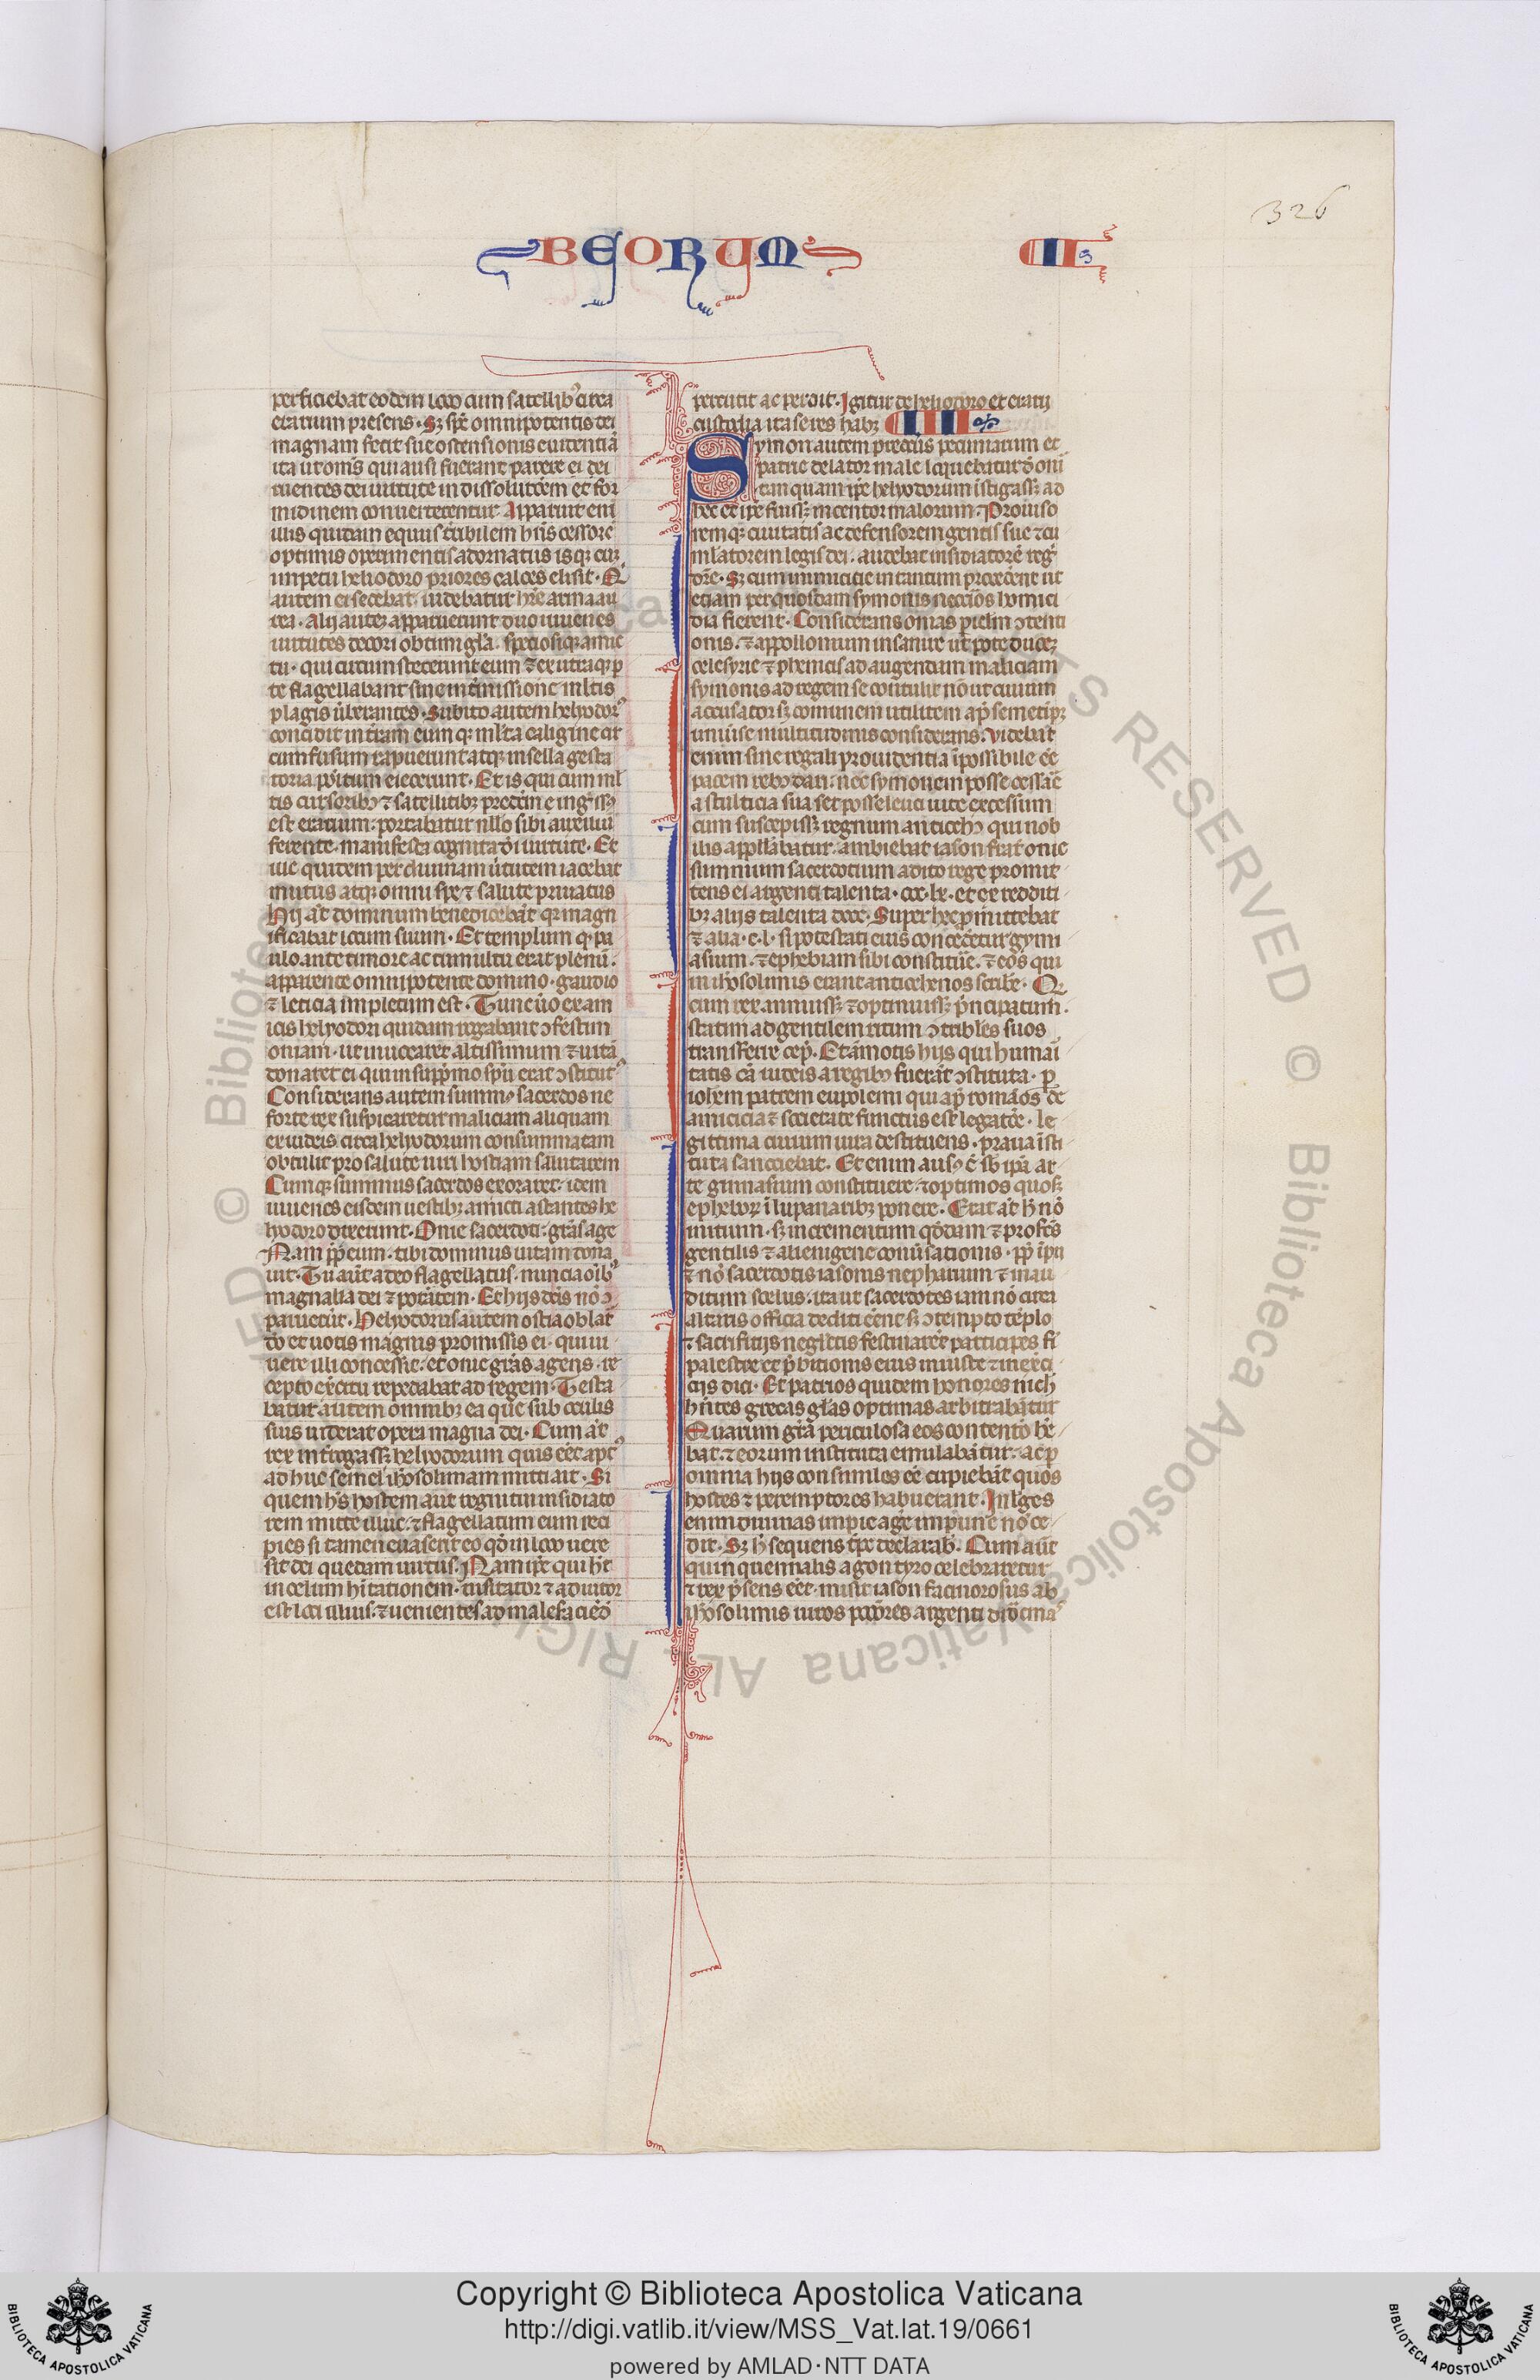 326
BEORUM II
perficiebat eodem loco cum satellib᷒ circa
erarium presens. Sꝫ sp̄c omnipotentis dei
magnam fecit sue ostensionis euidentiā
ita ut om̄s qui ausi fuerant parere ei dei
ruentes dei uirtute in dissolutōem et for
midinem conuerterentur. Apparuit eni
illis quidam equus t̄ribilem hn̄s cessorē
optimis operimentis adornatus isqꝫ cū
impetu heliodoro priores calces elisit. Q
autem ei sedebat. uidebatur hr̄e arma au
rea. Alij autē apparuerunt duo iuuenes
uirtutes decori obtimi gl̄a. speciosiqꝫ amic
tu. qui circumsteterunt eum ⁊ ex utraqꝫ p
te flagellabant sine int̄missione ml̄tis
plagis ūberantes. Subito autem helyodor᷒
concidit in t̄ram eum qꝫ ml̄ta caligine cir
cumfusum rapuerunt atqꝫ in sella gesta
toria positum eiecerunt. Et is qui cum ml̄
tis cursorib᷒ ⁊ satellitibꝫ predc̄m e ingͥss᷒
est erarium. portabatur nullo sibi auxiliū
ferente. manifesta cognita dī uirtute. Et
ille quidem per diuinam ūtutem iacebat
mutus atqꝫ omni spe ⁊ salute priuatus
Hij at̄ dominum benedicebāt qꝛ magn
ificabat locum suum. Et templum qͥ pa
ulo ante timore ac tumultu erat plenū.
apparente omnipotente domino. gaudio
⁊ leticia impletum est. Tunc ūo ex am
icis helyodori quidam rogabant ꝯfestim
oniam. ut inuocaret altissimum ⁊ uitā
donaret ei qui in supp̄mo sp̄u erat ꝯstitut᷒
Considerans autem summ᷒ sacerdos ne
forte rex suspicaretur maliciam aliquam
ex iudeis circa helyodorum consummatam
obtulit pro salute uiri hostiam salutarem
Cumqꝫ summus sacerdos exoraret. idem
iuuenes eisdem uestibꝫ amicti astantes he
lyodoro dixerunt. Onie sacerdoti. gr̄as age
Nam ꝓpͭ eum. tibi dominus uitam dona
uit. Tu aūt a deo flagellatus. nuncia oīb᷒
magnalia dei ⁊ potātem. Et hijs dc̄is nō ꝯ
paruerūt. Helyodorus autem ostia oblat
deo et uotis magnis promissis ei. qui ui
uere illi concessit. et onie gr̄as agens. re
cepto exc̄itu repedabat ad regem. Testa
batur autem omnibꝫ ea que sub oculis
suis uiderat opera magna dei. Cum at̄
rex int̄rogassꝫ helyodorum quis eēt apt᷒
adhuc semel ih̄rosolimam mitti ait. Si
quem hēs hostem aut regni tui insidiato
rem mitte illuc. ⁊ flagellatum eum reci
pies si tamen euaserit eo qō in loco uere
sit dei quedam uirtus. Nam ip̄e qui hēt
in celum hītationem. uisitator ⁊ adiutor
est loci illius. ⁊ uenientes ad malefaciēd
percutit ac perdit. Igitur de heliodoro et erarij
custodia ita se res habꝫ IIII
Symon autem predc̄us pecuniarum et
patrie delator male loquebatur d̄ oni
a tanquam ip̄e helyodorum īstigassꝫ ad
hec et ip̄e fuissꝫ incentor malorum. Prouiso
remqꝫ ciuitatis ac defensorem gentis sue ⁊ cū
mlatorem legis dei. audebat insidiatorē regͥ
dicē. Sꝫ cum inimicitie in tantum proced̄ent ut
etiam per quosdam symonis necc̄ios homici
dia fierent. Considerans onias p̄iclm ꝯtenti
onis. ⁊ appollonium insanire ut pote ducē
celesyrie ⁊ phenicis ad augendum maliciam
symonis ad regem se contulit nō ut ciuium
accusator sꝫ comunem utilitem ap̄ semetipꝫ
uniūse multitudinis considerans. Videbat
enim sine regali prouidentia īpossibile eē
pacem reb᷒ dari. nec symonem posse cessāe
a stulticia sua sed post seleuci uite excessum
cum suscepissꝫ regnum antioch᷒ qui nob
ilis appll̄abatur. ambiebat iason frat̄ onie
summum sacerdotium adito rege promit
tens ei argenti talenta. ccc. lx. et ex redditi
bꝫ alijs talenta lxxx. Super hec ꝓmittebat
⁊ alia. c. l. si potestati eius conced̄etur gymn
asium. ⁊ ephebiam sibi constitūe. ⁊ eos qui
in ih̄rosolimis erant antiochenos scrib̄e. Q
cum rex annuissꝫ ⁊ optinuissꝫ p̄ncipatum.
statim ad gentilem ritum ꝯtribules suos
transferre cep̄. Et amotis hijs qui humaī
tatis cā iudeis a regib᷒ fuerāt ꝯstituta. ꝑ
ioh̄em patrem eupolemi qui ap̄ romāos de
amicicia ⁊ societate functus est legatōe. le
gittima ciuium iura destituens. praua īsti
tuta sancciebat. Et enim aus᷒ ē sb ip̄a ar
ce gimnasium constituere. ⁊ optimos quosqꝫ
epheboꝝ ī lupanaribꝫ ponere. Erat at̄ h̄ nō
initium. sꝫ incrementum qōdam ⁊ profc̄s
gentilis ⁊ alienigene conūsationis. ꝓpͭ īpii
⁊ nō sacerdotis iasonis nepharium ⁊ inau
ditum scelus. ita ut sacerdotes iam nō circa
altaris officia dediti eēnt sꝫ ꝯtempto tēplo
⁊ sacrifitijs neglectis festinarēt participes fi
palestre et p̄bitionis eius iniuste ⁊ in exerci
cijs disci. Et patrios quidem honores nich
hn̄tes grecas gl̄as optimas arbitrabātur
Quarum gr̄a periculosa eos contentio he
bat. ⁊ eorum instituta emulabātur. ac ꝑ
omnia hijs consimiles eē cupiebāt quos
hostes ⁊ peremptores habuerant. In leges
enim diuinas impie agē impune nō ce
dit. Sꝫ h̄ sequens tp̄c declarab̄. Cum aūt
quinquennalis agon tyro celebraretur
⁊ rex p̄sens eēt. misit iason facinorosus ab
ih̄rosolimis uiros pctōres argenti didrcma᷒
Copyright © Biblioteca Apostolica Vaticana
http://digi.vatlib.it/view/MSS_Vat.lat.19/0661
powered by AMLAD·NTT DATA